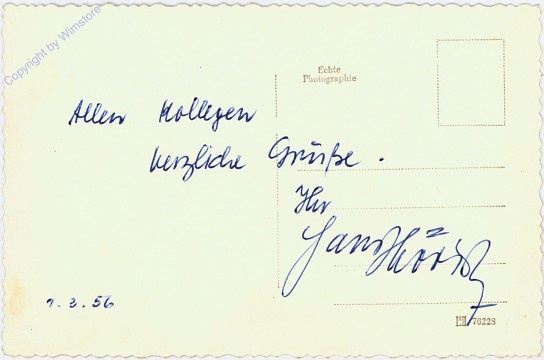 Copyright by Wimstore
Echte
Photographie
Allen Kollegen
herzliche Grüße.
Ihr
Hans
1.3.56
76228